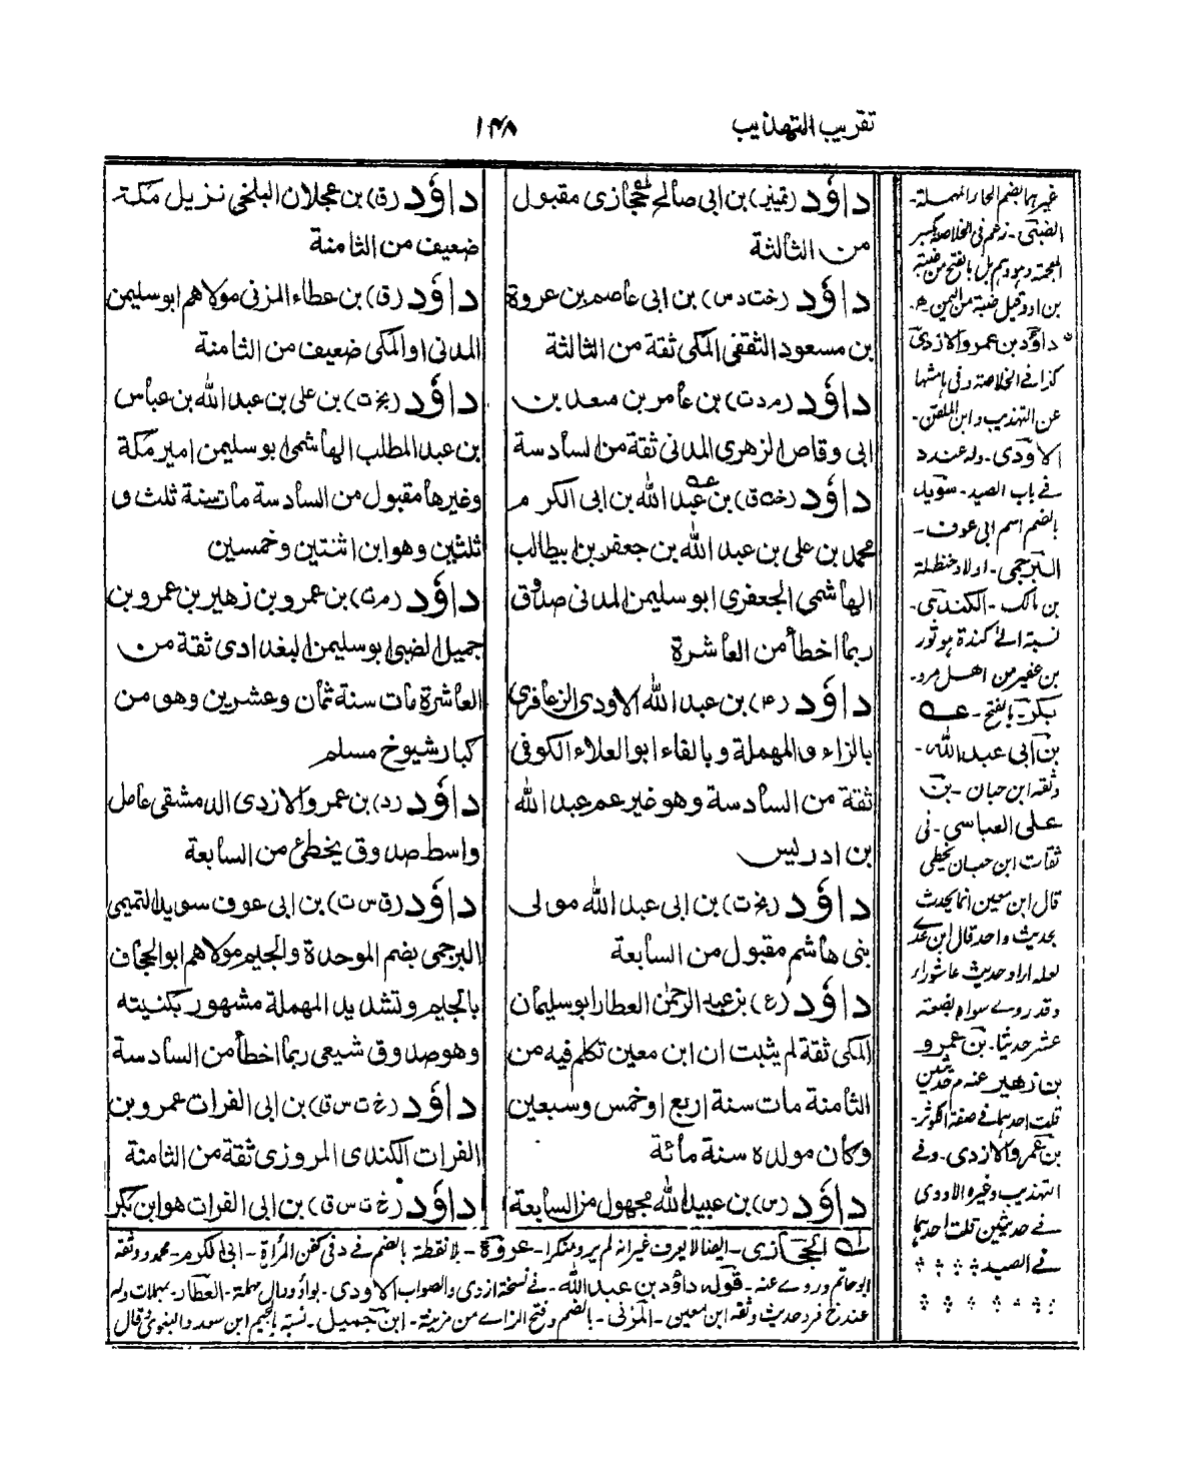 تقریب التهذیب
۱۴۸
داؤد (تمییز) بن ابی صالح حجازی مقبول
من الثالثة
داؤد (خت د س) بن ابی عاصم بن عروة
بن مسعود الثقفی المکی ثقة من الثالثة
داؤد (م د ت) بن عامر بن سعد بن
ابی وقاص الزهری المدنی ثقة من السادسة
داؤد بن عبد الله بن ابی الکرم
محمد بن علی بن عبد الله بن جعفر بن ابیطالب
الهاشمی الجعفری ابو سلیمن المدنی صدوق
ربما اخطأ من العاشرة
داؤد (۴) بن عبد الله الاودی الزعافری
بالزاء والمهملة وبالفاء ابو العلاء الکوفی
ثقة من السادسة وهو غیر عم عبد الله
بن ادریس
داؤد (بخ ت) بن ابی عبد الله مولی
بنی هاشم مقبول من السابعة
داؤد (ع) بن عبد الرحمٰن العطار ابو سلیمان
المکی ثقة لم یثبت ان ابن معین تکلم فیه من
الثامنة مات سنة اربع او خمس وسبعین
وکان مولده سنة مائة
داؤد (س) بن عبید الله مجهول من السابعة
داؤد (ق) بن عجلان البلخی نزیل مکة
ضعیف من الثامنة
داؤد (ق) بن عطاء المزنی مولاهم ابو سلیمن
المدنی او المکی ضعیف من الثامنة
داؤد (بخ ت) بن علی بن عبد الله بن عباس
بن عبد المطلب الهاشمی ابو سلیمن امیر مکة
وغیرها مقبول من السادسة مات سنة ثلث و
ثلثین وهو ابن اثنتین وخمسین
داؤد (م ت) بن عمرو بن زهیر بن عمرو بن
جمیل الضبی ابو سلیمن البغدادی ثقة من
العاشرة مات سنة ثمان وعشرین وهو من
کبار شیوخ مسلم
داؤد (د) بن عمرو الازدی الدمشقی عامل
واسط صدوق یخطئ من السابعة
داؤد (ق س ت) بن ابی عوف سوید التمیمی
البرجمی بضم الموحدة والجیم مولاهم ابو الجحاف
بالجیم وتشدید المهملة مشهور بکنیته
وهو صدوق شیعی ربما اخطأ من السادسة
داؤد (خ ت س ق) بن ابی الفرات عمرو بن
الفرات الکندی المروزی ثقة من الثامنة
داؤد (خ ت س ق) بن ابی الفرات هو ابن بکر
غیرهما بضم الحاء المهملة۔
الضبی۔ زعم فی الخلاصة بکسر
المعجمة وهو وهم بل بالفتح من ضبة
بن اد وقیل ضبة من الیمن
داؤد بن عمرو الازدی
کذا فے الخلاصة وفی هامشها
عن التهذیب وابن الملقن۔
الاودی۔ وله عند د
فے باب الصید۔ سوید
بالضم اسم ابی عوف۔
البرجمی۔ اولاد حنظلة
بن مالک۔ الکندی۔
نسبة الے کندة هو ثور
بن عفیر من اهل مرو۔
بکر بالفتح۔ عه
بن ابی عبد الله۔
وثقه ابن حبان۔ بن
علی العباسی۔ فی
ثقات ابن حبان یخطی
قال ابن معین انما یحدث
بحدیث واحد قال ابن عدی
لعله اراد حدیث عاشوراء
وقد روے سواه بضعة
عشر حدیثا۔ بن عمرو
بن زهیر عنه م حدیثین
قلت احدهما فے صفة الکوثر۔
بن عمرو الازدی۔ وفے
التهذیب وغیره الاودی
فے حدیثین قلت احدهما
فے الصید
الحجازی۔ ایضا لا یعرف غیر انه لم یرو منکرا۔ عروة۔ بلا نقطة بالضم فے د فی کفن المرأة۔ ابی الکرم۔ محمد ووثقه
ابو حاتم وروے عنه۔ قوله داؤد بن عبد الله۔ فے نسخة ازدی والصواب الاودی۔ بواو ودال مهملة۔ العطار۔ بمهملات وله
عند خ فرد حدیث وثقه ابن معین۔ المزنی۔ بالضم وفتح الزاے من مزینة۔ ابن جمیل۔ نسبة بالجیم ابن سعد والبغوی قال